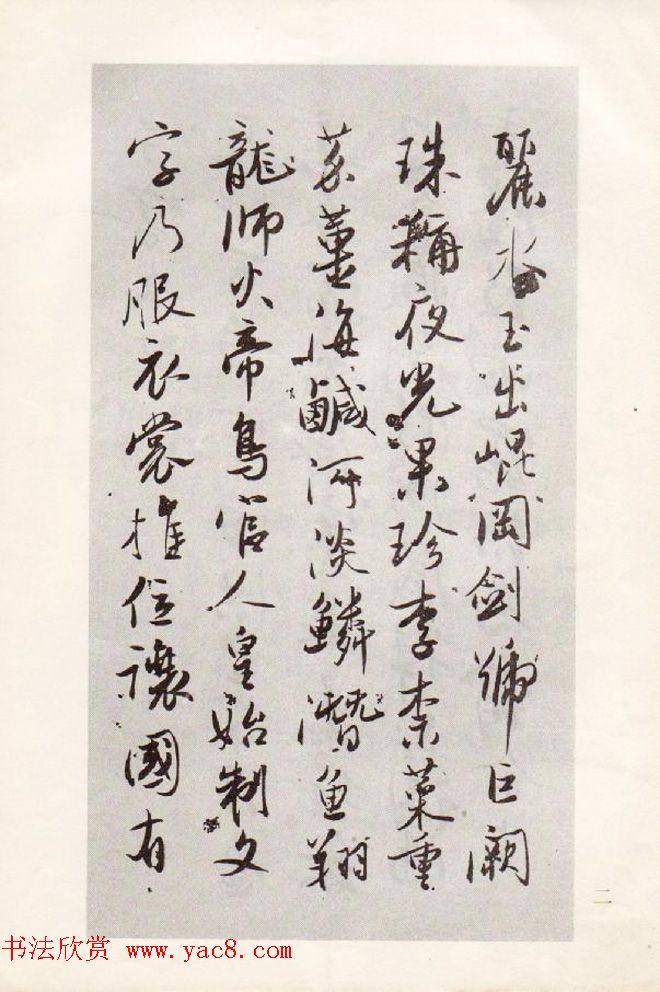 麗水玉出崐岡劍號巨闕
珠稱夜光果珍李柰菜重
芥薑海鹹河淡鱗潛魚翔
龍師火帝鳥官人皇始制文
字乃服衣裳推位讓國有
二
书法欣赏 www.yac8.com